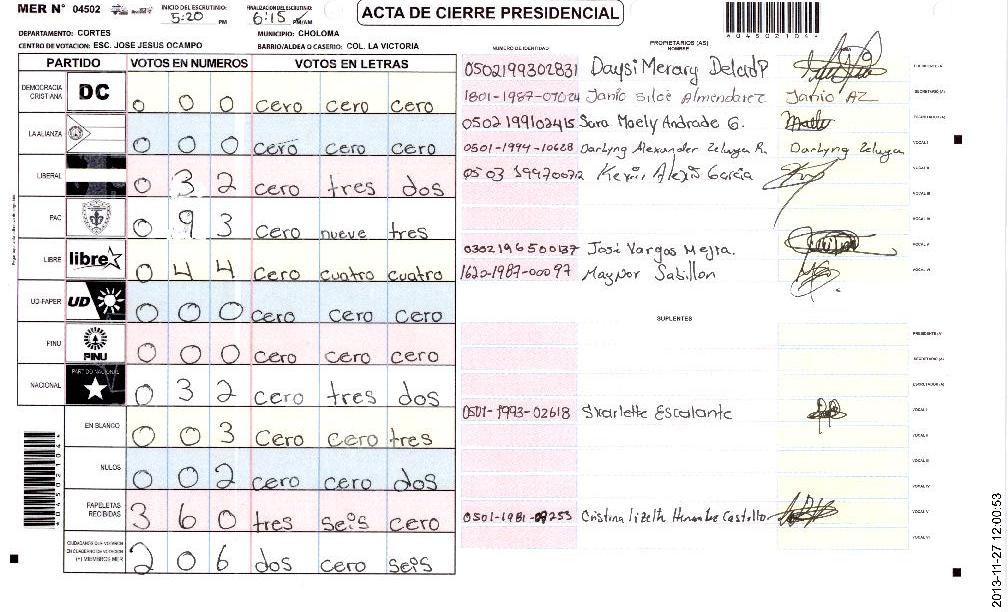 MER N° 04502
INICIO DEL ESCRUTINIO: 5:20 PM
FINALIZACION DEL ESCRUTINIO: 6:15 PM/AM
ACTA DE CIERRE PRESIDENCIAL
04502104
DEPARTAMENTO: CORTES
MUNICIPIO: CHOLOMA
CENTRO DE VOTACION: ESC. JOSE JESUS OCAMPO
BARRIO/ALDEA O CASERIO: COL. LA VICTORIA
PARTIDO VOTOS EN NUMEROS VOTOS EN LETRAS
DEMOCRACIA CRISTIANA DC 0 0 0 cero cero cero
LA ALIANZA 0 0 0 cero cero cero
LIBERAL 0 3 2 cero tres dos
PAC 0 9 3 cero nueve tres
LIBRE libre 0 4 4 cero cuatro cuatro
UD-FAPER UD 0 0 0 cero cero cero
PINU PINU 0 0 0 cero cero cero
NACIONAL PARTIDO NACIONAL 0 3 2 cero tres dos
EN BLANCO 0 0 3 cero cero tres
NULOS 0 0 2 cero cero dos
PAPELETAS RECIBIDAS 3 6 0 tres seis cero
CIUDADANOS QUE VOTARON EN CUADERNO DE VOTACION (+) MIEMBROS MER 2 0 6 dos cero seis
04502104
NUMERO DE IDENTIDAD
PROPIETARIOS (AS)
NOMBRE
0502199302831 Daysi Merary Delcid P PRESIDENTE (A)
1801-1987-07024 Janio Siloe Almendarez Janio AZ SECRETARIO (A)
0502199102415 Sara Maely Andrade G. ESCRUTADOR (A)
0501-1994-10628 Darlyng Alexander Zelaya R. Darlyng Zelaya VOCAL I
0503 199700712 Kevin Alexis Garcia VOCAL II
VOCAL III
VOCAL IV
0302196500137 José Vargas Mejia. VOCAL V
1620-1987-00097 Maynor Sabillon VOCAL VI
SUPLENTES
PRESIDENTE (A)
SECRETARIO (A)
ESCRUTADOR (A)
0501-1993-02618 Skarlette Escalante VOCAL I
VOCAL II
VOCAL III
VOCAL IV
0501-1981-09253 Cristina Lizeth Castillo VOCAL V
VOCAL VI
2013-11-27 12:00:53